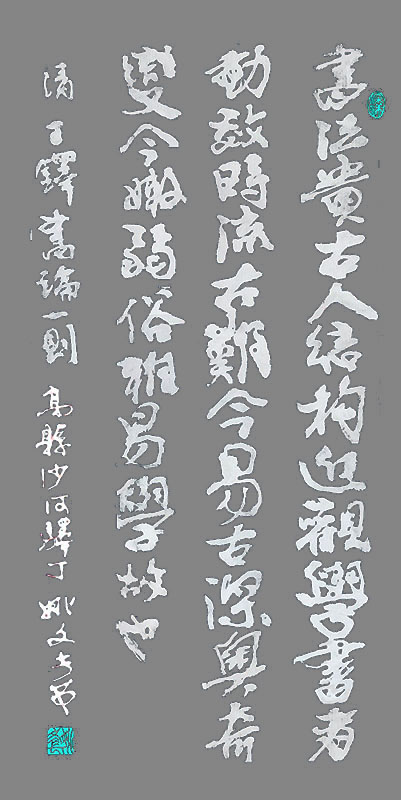 書法貴古人結构近觀學書者
動效時流古難今易古深奧奇
今嫩弱俗雅易學故也
清王鐸書論一則 高縣沙河驛丁姚文